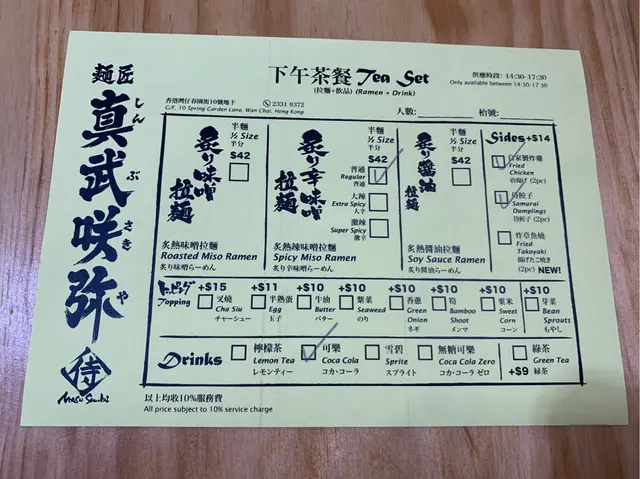 麵匠
真武咲弥
しん
ぶ
さき
や
侍
Masu Senki
下午茶餐 Tea Set
(拉麵+飲品) (Ramen + Drink)
供應時段: 14:30-17:30
Only available between 14:30-17:30
香港灣仔春園街10號地下 ✆ 2331 9372
G/F, 10 Spring Garden Lane, Wan Chai, Hong Kong
人數: 枱號:
炙り味噌拉麵
半麵
½ Size
半分
$42
炙熱味噌拉麵
Roasted Miso Ramen
炙り味噌らーめん
炙り辛味噌拉麵
半麵
½ Size
半分
$42
普通
Regular
普通
大辣
Extra Spicy
大辛
激辣
Super Spicy
激辛
炙熱辣味噌拉麵
Spicy Miso Ramen
炙り辛味噌らーめん
炙り醤油拉麵
半麵
½ Size
半分
$42
炙熱醬油拉麵
Soy Sauce Ramen
炙り醤油らーめん
Sides +$14
自家製炸雞
Fried
Chicken
唐揚げ (2pc)
侍餃子
Samurai
Dumplings
侍餃子 (2pc)
炸章魚燒
Fried
Takoyaki
揚げたこ焼き
(2pc) NEW!
トッピング
Topping
+$15
叉燒
Cha Siu
チャーシュー
+$11
半熟蛋
Egg
玉子
+$10
牛油
Butter
バター
+$10
紫菜
Seaweed
のり
+$10
香蔥
Green
Onion
ネギ
+$10
筍
Bamboo
Shoot
メンマ
+$10
粟米
Sweet
Corn
コーン
+$10
芽菜
Bean
Sprouts
もやし
Drinks
檸檬茶
Lemon Tea
レモンティー
可樂
Coca Cola
コカ・コーラ
雪碧
Sprite
スプライト
無糖可樂
Coca Cola Zero
コカ・コーラ ゼロ
綠茶
Green Tea
+$9 緑茶
以上均收10%服務費
All price subject to 10% service charge